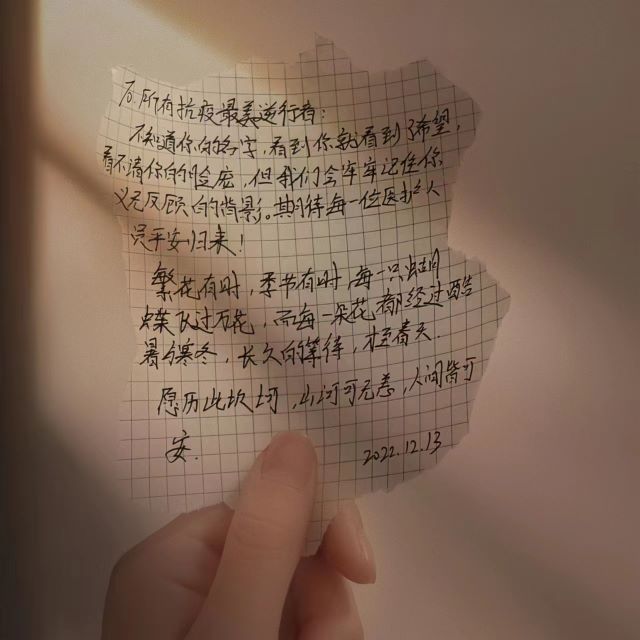 所有抗疫最美逆行者：
不知道你的名字，看到你就看到了希望，
看不清你的脸庞，但我们会牢牢记住你
义无反顾的背影。期待每一位医护人
员平安归来！
繁花有时，季节有时，每一只蝴
蝶飞过万花，而每一朵花都经过酷
暑与寒冬，长久的等待，才至春天.
愿历此坎坷，山河可无恙，人间皆可
安.
2022.12.13